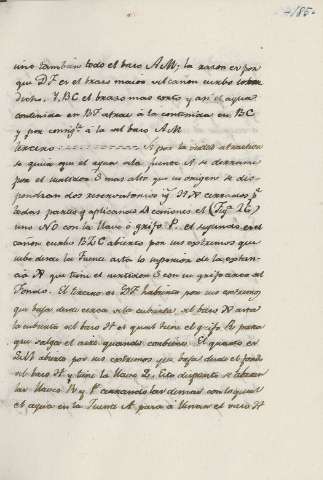 185
uno tambien todo el baso A M; la razon es por
que D F es el brazo maior del cañon curbo
dicho. Y BC el brazo mas corto y asi el agua
contenida en DF atrae à la contenida en BC
y por consig.te à la del baso A M
Tercero Si por la misma atractiva
se quiere que el agua de la fuente A se derrame
por el surtidor S mas alto que su origen se dis-
pondran dos reservatorios H N cerrados p.r
todas partes y aplicando cañones el (Fig. 16)
uno NO con la llave ò grifo P. el segundo es el
cañon curbo BLC abierto por sus extremos que
sube desde la fuente asta lo superior de la
N que tiene el surtidor S con un grifo cerca del
Fondo. El tercero es DF habierto por sus extremos
que baja desde cerca de la cubierta del baso N asta
la cubierta del baso H el qual tiene el grifo R para
que salga el aire quando combiene. El quarto es
abierto por sus extremos que baja desde el fondo
del baso H y tiene la llave Z. Esto dispuesto se
las llaves R y P cerrando las demas con lo qual
el agua en la Fuente A pasa à llenar el vaso H